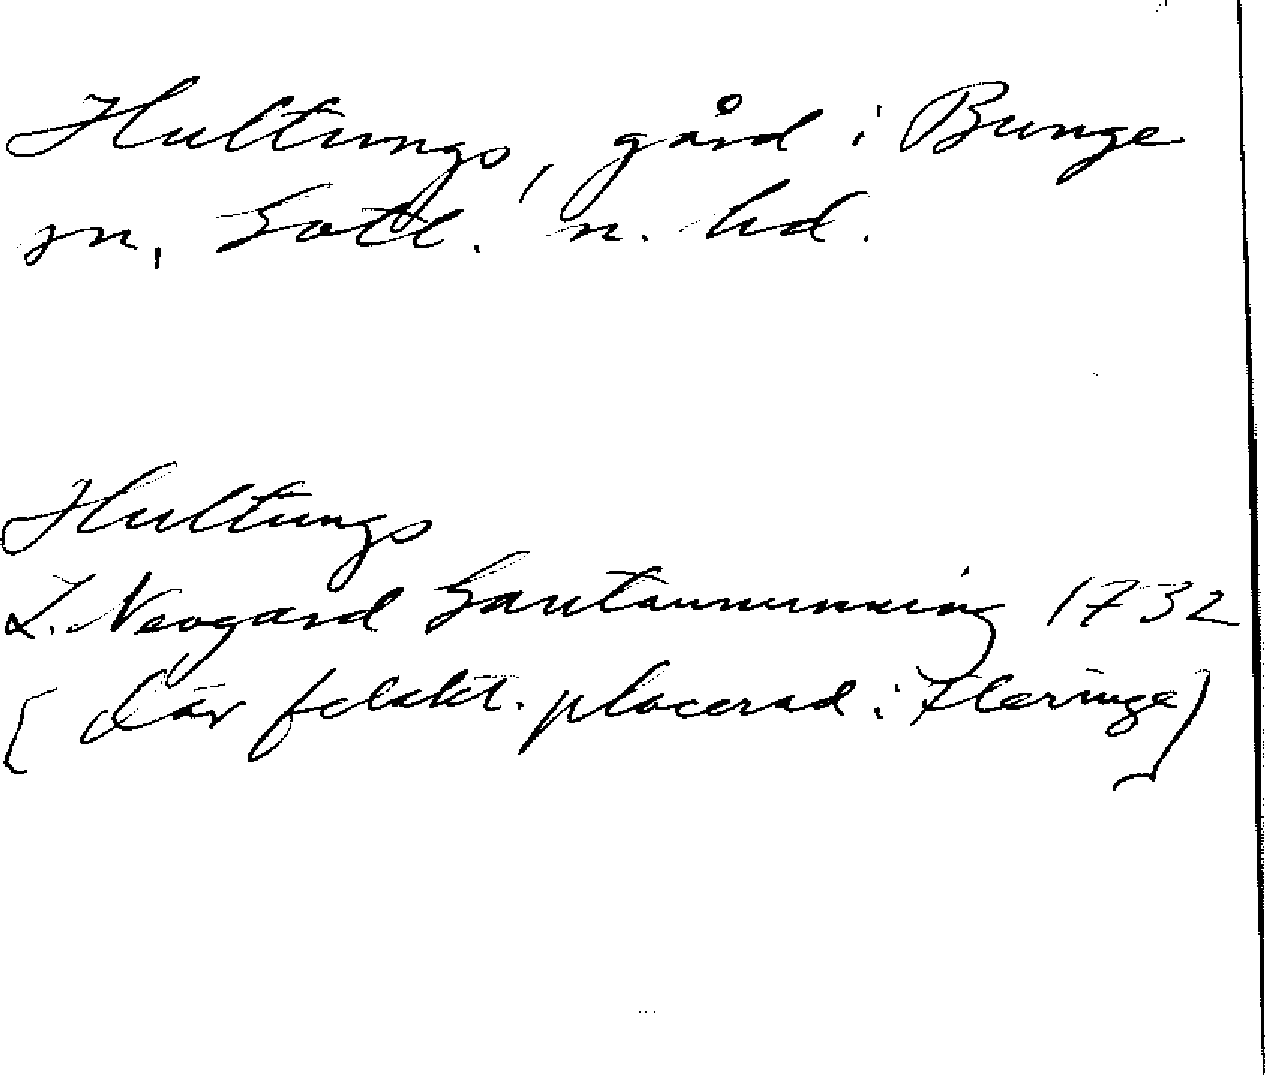 Hultungs, gård i Bunge
sn, Gotl. n. hd.
Hultungs
L. Neogard Gautauminning 1732
(där felakt. placerad i Fleringe)